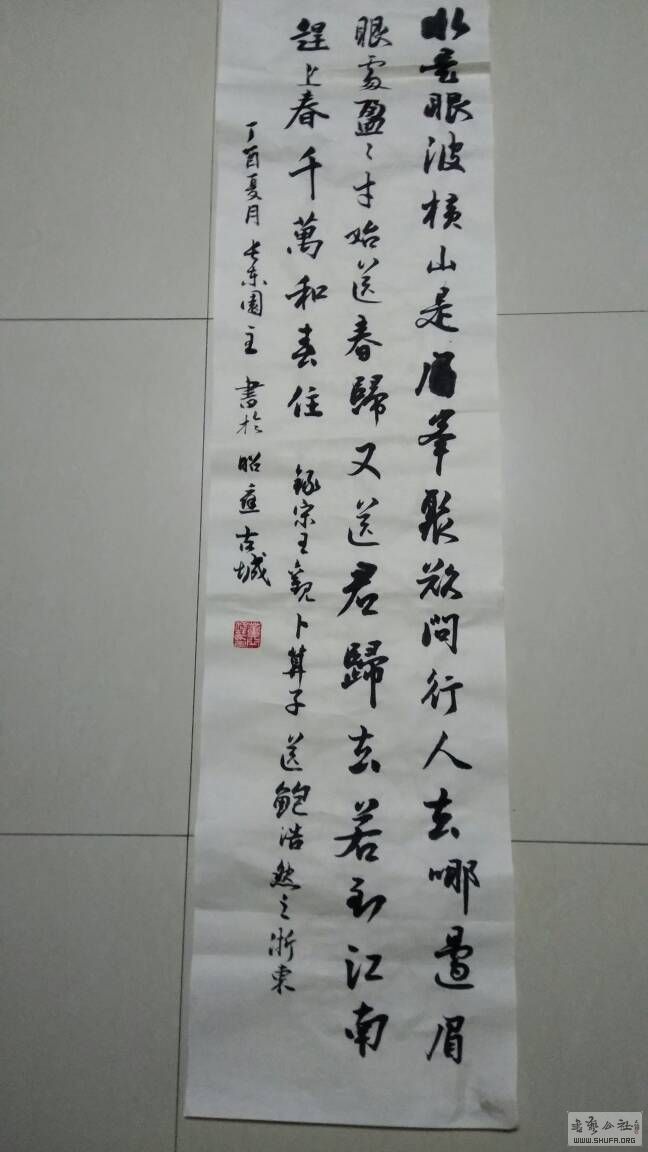 水是眼波横山是眉峯聚欲問行人去哪邊眉
眼處盈〻才始送春歸又送君歸去若到江南
趕上春千萬和春住 錄宋王觀卜算子 送鮑浩然之浙東
丁酉夏月 长东園主 書於 昭應古城
书艺公社
WWW.SHUFA.ORG